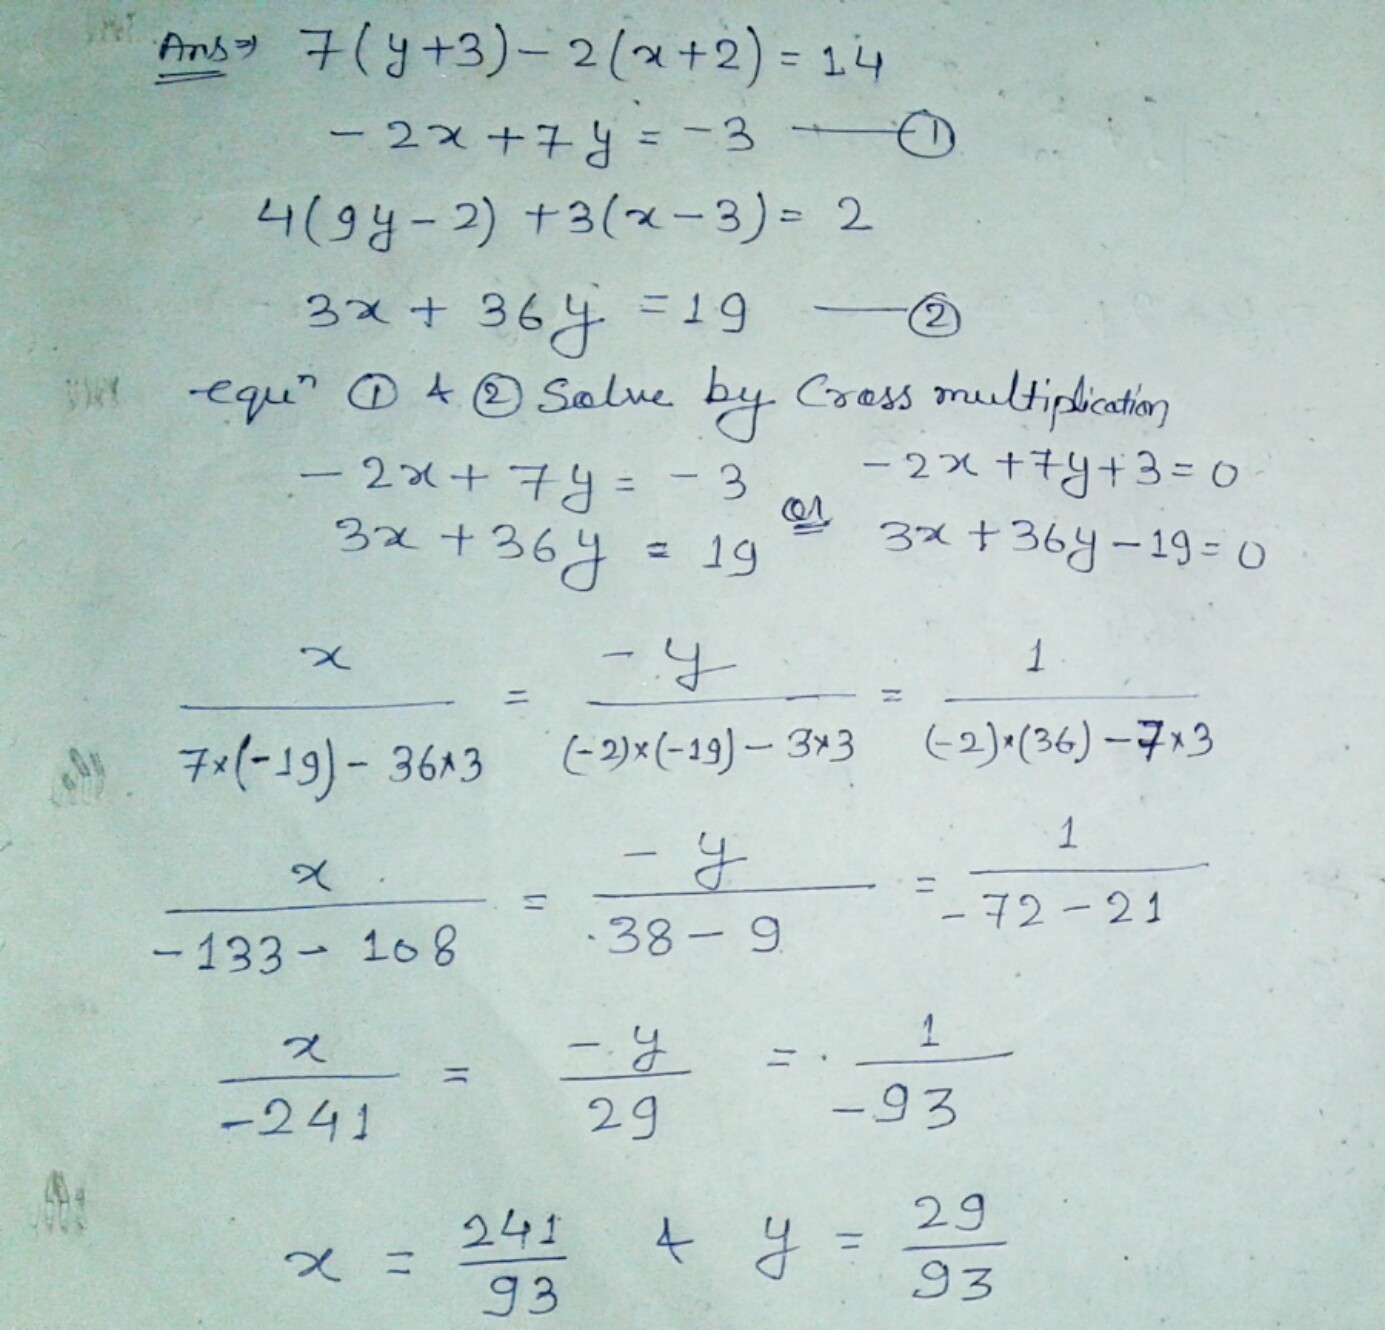 Ans⇒ 7(y+3)-2(x+2)=14
-2x+7y=-3 —①
4(9y-2)+3(x-3)=2
3x+36y=19 —②
equⁿ ① & ② Solve by Cross multiplication
-2x+7y=-3 or -2x+7y+3=0
3x+36y=19 3x+36y-19=0
x/(7×(-19)-36×3) = -y/((-2)×(-19)-3×3) = 1/((-2)×(36)-7×3)
x/(-133-108) = -y/(38-9) = 1/(-72-21)
x/-241 = -y/29 = 1/-93
x = 241/93 & y = 29/93